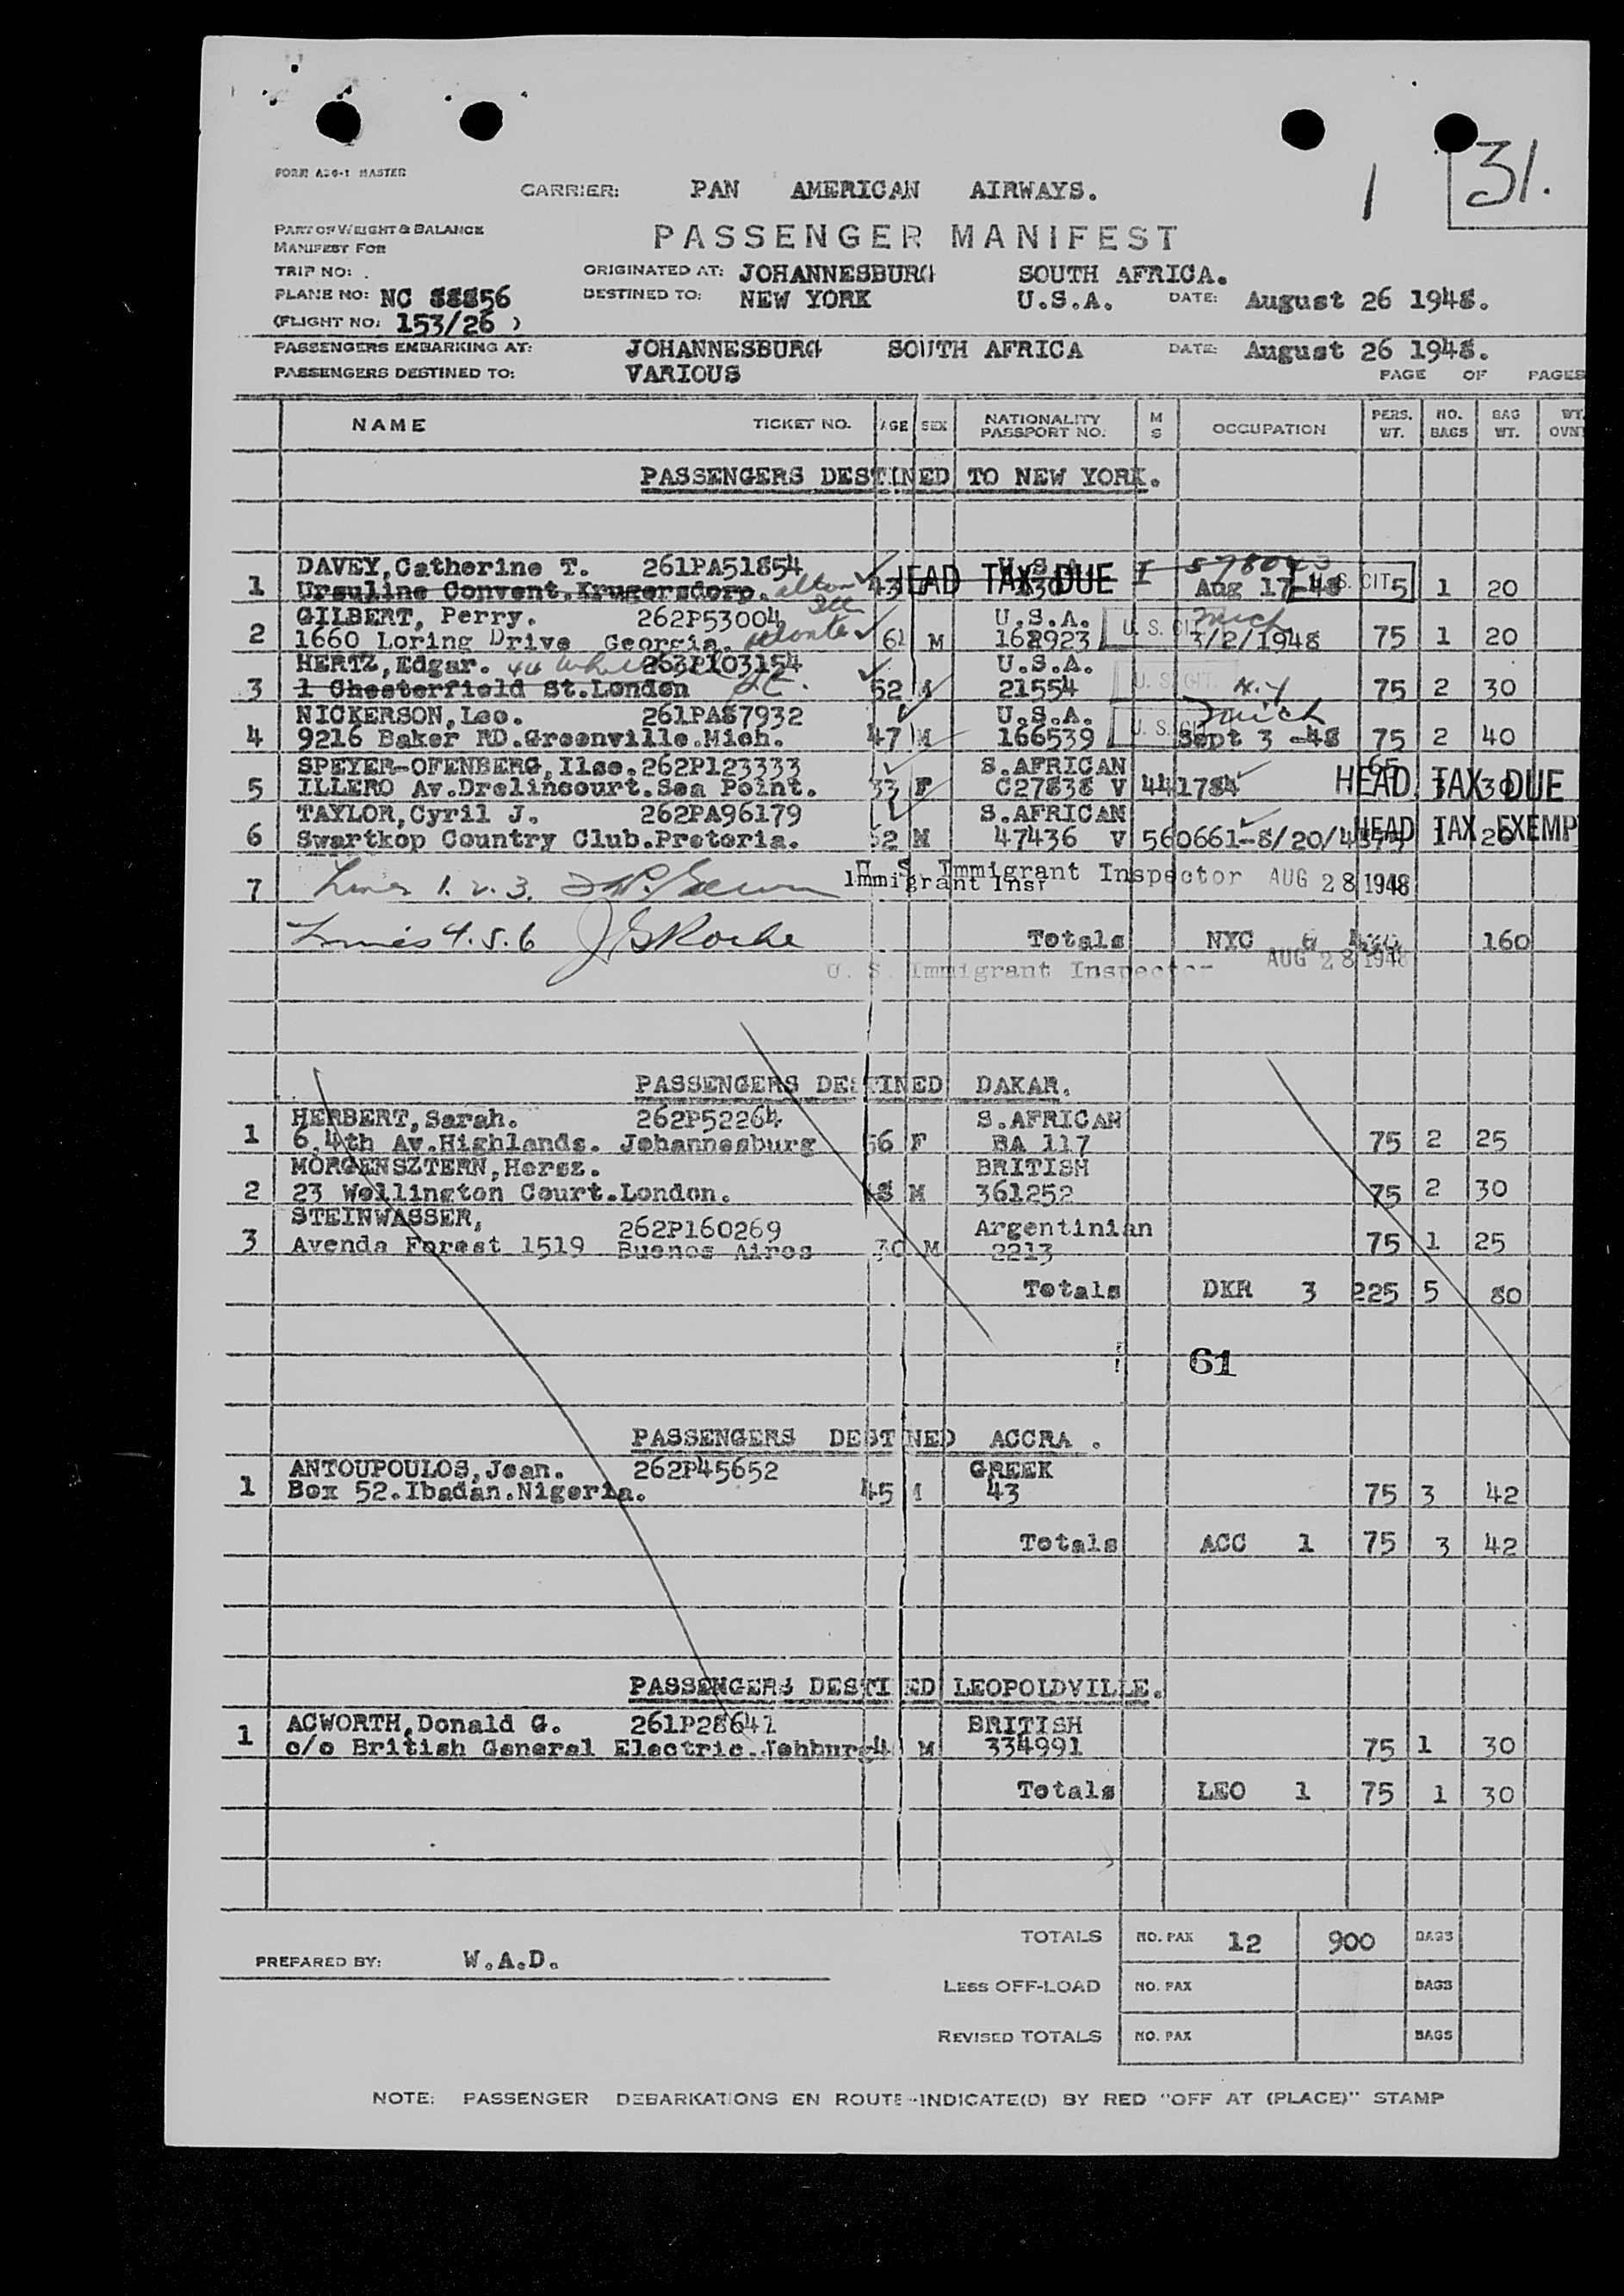 31.
1
FORM A26-1 MASTER
CARRIER: PAN AMERICAN AIRWAYS.
PART OF WEIGHT & BALANCE
MANIFEST FOR
PASSENGER MANIFEST
TRIP NO: . ORIGINATED AT: JOHANNESBURG SOUTH AFRICA.
PLANE NO: NC 88856 DESTINED TO: NEW YORK U.S.A. DATE: August 26 1948.
(FLIGHT NO: 153/26 )
PASSENGERS EMBARKING AT: JOHANNESBURG SOUTH AFRICA DATE: August 26 1948.
PASSENGERS DESTINED TO: VARIOUS
PAGE OF PAGES
NAME TICKET NO. AGE SEX NATIONALITY PASSPORT NO. M S OCCUPATION PERS. WT. NO. BAGS BAG WT. WT.
PASSENGERS DESTINED TO NEW YORK.
DAVEY, Catherine T. 261PA51854 U.S.A.
1 Ursuline Convent.Krugersdorp. 43 HEAD TAX DUE Aug 17-48 U.S. CIT 5 1 20
GILBERT, Perry. 262P53004 U.S.A. Mich
2 1660 Loring Drive Georgia. 61 M 162923 U. S. CIT 3/2/1948 75 1 20
HERTZ, Edgar. 263P103154 U.S.A.
3 1 Chesterfield St.London 52 21554 U. S. CIT. N.Y 75 2 30
NICKERSON, Leo. 261PA87932 U.S.A. Mich
4 9216 Baker RD.Greenville.Mich. 47 M 166539 U. S. CIT Sept 3 -48 75 2 40
SPEYER-OFENBERG, Ilse. 262P123333 S.AFRICAN 65
5 ILLERO Av.Drelincourt.Sea Point. 33 F C27838 V 441784 HEAD TAX DUE
TAYLOR, Cyril J. 262PA96179 S.AFRICAN
6 Swartkop Country Club.Pretoria. 52 M 47436 V 560661-8/20/48 HEAD TAX EXEMP
7 Lines 1. 2. 3. U. S. Immigrant Inspector AUG 28 1948
Lines 4. 5. 6 J G Roche Totals NYC 6 160
U. S. Immigrant Inspector AUG 28 1948
PASSENGERS DESTINED DAKAR.
HERBERT, Sarah. 262P52264 S.AFRICAN
1 6,4th Av.Highlands. Johannesburg 56 F BA 117 75 2 25
MORGENSZTERN, Hersz. BRITISH
2 23 Wellington Court.London. M 361252 75 2 30
STEINWASSER, 262P160269 Argentinian
3 Avenda Forest 1519 Buenos Aires 30 M 2213 75 1 25
Totals DKR 3 225 5 80
61
PASSENGERS DESTINED ACCRA .
ANTOUPOULOS, Jean. 262P45652 GREEK
1 Box 52.Ibadan.Nigeria. 45 43 75 3 42
Totals ACC 1 75 3 42
PASSENGERS DESTINED LEOPOLDVILLE.
ACWORTH, Donald G. 261P28641 BRITISH
1 c/o British General Electric.Johburg M 334991 75 1 30
Totals LEO 1 75 1 30
TOTALS NO. PAX 12 900 BAGS
PREPARED BY: W.A.D.
LESS OFF-LOAD NO. PAX BAGS
REVISED TOTALS NO. PAX BAGS
NOTE: PASSENGER DEBARKATIONS EN ROUTE-INDICATE(D) BY RED "OFF AT (PLACE)" STAMP